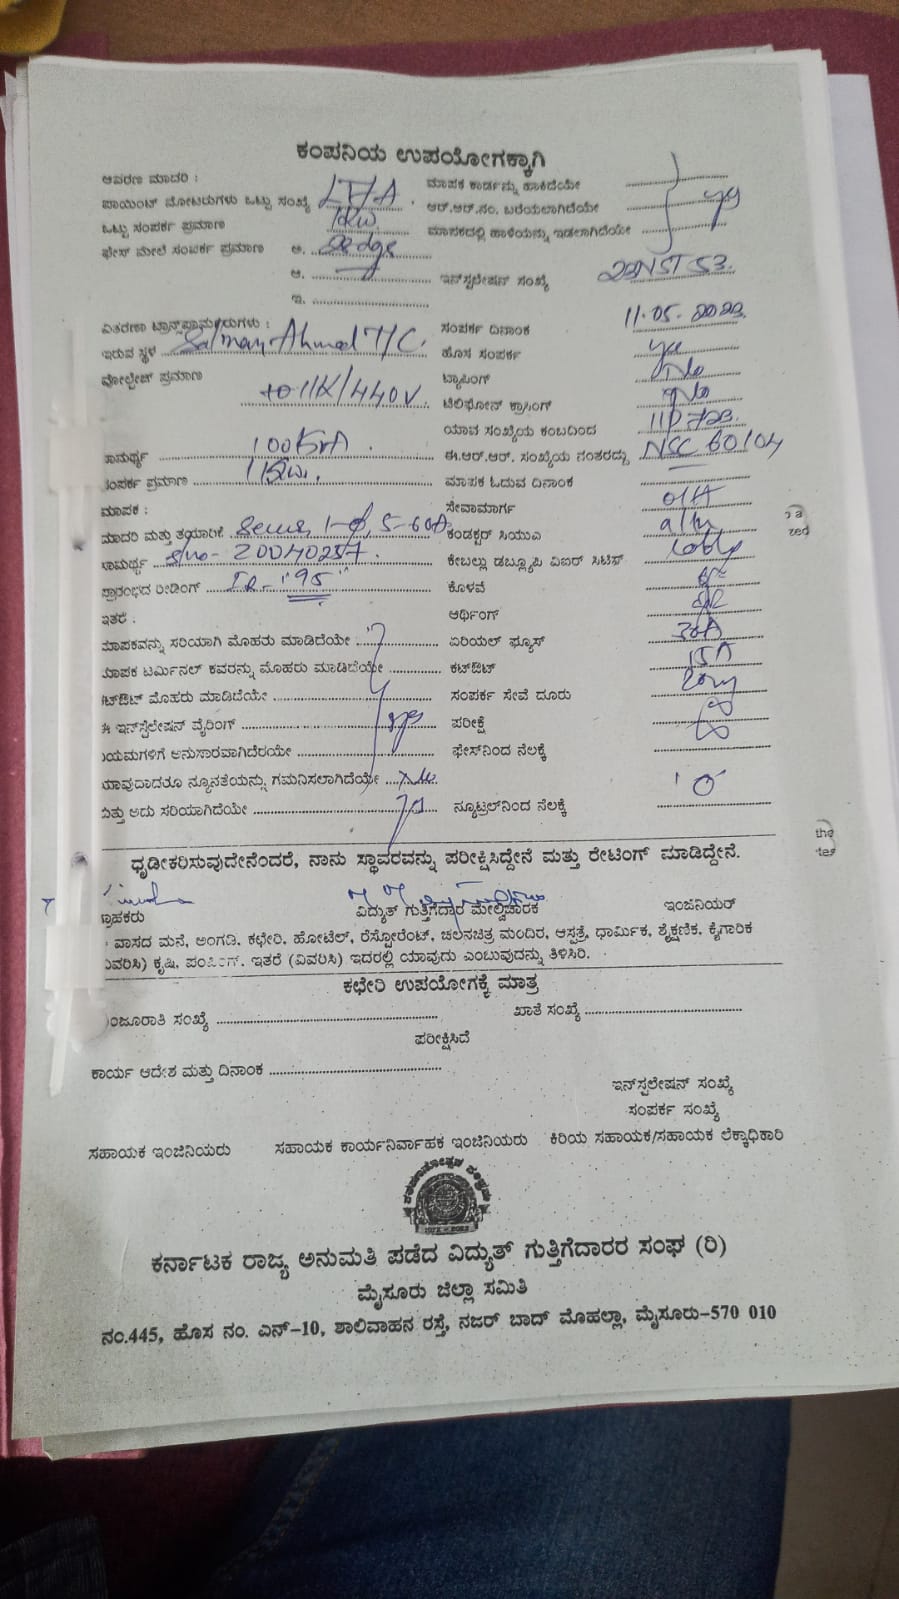 ಕಂಪನಿಯ ಉಪಯೋಗಕ್ಕಾಗಿ
ಆವರಣ ಮಾದರಿ : ಮಾಪಕ ಕಾರ್ಡನ್ನು ಹಾಕಿದೆಯೇ
ಪಾಯಿಂಟ್ ಮೋಟರುಗಳು ಒಟ್ಟು ಸಂಖ್ಯೆ ಆರ್.ಆರ್.ನಂ. ಬರೆಯಲಾಗಿದೆಯೇ yes
ಒಟ್ಟು ಸಂಪರ್ಕ ಪ್ರಮಾಣ 1KW ಮಾಸಕದಲ್ಲಿ ಹಾಳೆಯನ್ನು ಇಡಲಾಗಿದೆಯೇ
ಫೇಸ್ ಮೇಲೆ ಸಂಪರ್ಕ ಪ್ರಮಾಣ ಅ.
ಆ. ಇನ್‌ಸ್ಟಲೇಷನ್ ಸಂಖ್ಯೆ
ಇ.
ವಿತರಣಾ ಟ್ರಾನ್ಸ್‌ಫಾರ್ಮರುಗಳು : ಸಂಪರ್ಕ ದಿನಾಂಕ 11.05.2023
ಇರುವ ಸ್ಥಳ Salman Ahmed T/C. ಹೊಸ ಸಂಪರ್ಕ yes
ವೋಲ್ಟೇಜ್ ಪ್ರಮಾಣ ಟ್ಯಾಪಿಂಗ್ No
11K/440V ಟೆಲಿಫೋನ್ ಕ್ರಾಸಿಂಗ್ No
ಯಾವ ಸಂಖ್ಯೆಯ ಕಂಬದಿಂದ
ಸಾಮರ್ಥ್ಯ 100KVA ಈ.ಆರ್.ಆರ್. ಸಂಖ್ಯೆಯ ನಂತರದ್ದು NSC 60104
ಸಂಪರ್ಕ ಪ್ರಮಾಣ ಮಾಪಕ ಓದುವ ದಿನಾಂಕ
ಮಾಪಕ : ಸೇವಾಮಾರ್ಗ O/H
ಮಾದರಿ ಮತ್ತು ತಯಾರಿಕೆ 1-ф, 5-60A ಕಂಡಕ್ಟರ್ ಸಿಯುಎ
ಸಾಮರ್ಥ್ಯ S/no- 20040257 ಕೇಬಲ್ಲು ಡಬ್ಲ್ಯೂಪಿ ವಿಐರ್ ಸಿಟಿಸ್
ಪ್ರಾರಂಭದ ರೀಡಿಂಗ್ IR- "95" ಕೊಳವೆ
ಇತರೆ : ಆರ್ಥಿಂಗ್
ಮಾಪಕವನ್ನು ಸರಿಯಾಗಿ ಮೊಹರು ಮಾಡಿದೆಯೇ ಏರಿಯಲ್ ಫ್ಯೂಸ್ 30A
ಮಾಪಕ ಟರ್ಮಿನಲ್ ಕವರನ್ನು ಮೊಹರು ಮಾಡಿದೆಯೇ ಕಟ್‌ಔಟ್ 15A
ಕಟ್‌ಔಟ್ ಮೊಹರು ಮಾಡಿದೆಯೇ ಸಂಪರ್ಕ ಸೇವೆ ದೂರು
ಇನ್‌ಸ್ಟಲೇಷನ್ ವೈರಿಂಗ್ yes ಪರೀಕ್ಷೆ
ನಿಯಮಗಳಿಗೆ ಅನುಸಾರವಾಗಿದೆರಯೇ ಫೇಸ್‌ನಿಂದ ನೆಲಕ್ಕೆ
ಯಾವುದಾದರೂ ನ್ಯೂನತೆಯನ್ನು ಗಮನಿಸಲಾಗಿದೆಯೇ
ಮತ್ತು ಅದು ಸರಿಯಾಗಿದೆಯೇ ನ್ಯೂಟ್ರಲ್‌ನಿಂದ ನೆಲಕ್ಕೆ 'O'
ಧೃಡೀಕರಿಸುವುದೇನೆಂದರೆ, ನಾನು ಸ್ಥಾವರವನ್ನು ಪರೀಕ್ಷಿಸಿದ್ದೇನೆ ಮತ್ತು ರೇಟಿಂಗ್ ಮಾಡಿದ್ದೇನೆ.
ಗ್ರಾಹಕರು ವಿದ್ಯುತ್ ಗುತ್ತಿಗೆದಾರ ಮೇಲ್ವಿಚಾರಕ ಇಂಜಿನಿಯರ್
ವಾಸದ ಮನೆ, ಅಂಗಡಿ, ಕಛೇರಿ, ಹೋಟೆಲ್, ರೆಸ್ಟೋರೆಂಟ್, ಚಲನಚಿತ್ರ ಮಂದಿರ, ಆಸ್ಪತ್ರೆ, ಧಾರ್ಮಿಕ, ಶೈಕ್ಷಣಿಕ, ಕೈಗಾರಿಕ
(ವಿವರಿಸಿ) ಕೃಷಿ, ಪಂಪಿಂಗ್. ಇತರೆ (ವಿವರಿಸಿ) ಇದರಲ್ಲಿ ಯಾವುದು ಎಂಬುವುದನ್ನು ತಿಳಿಸಿರಿ.
ಕಛೇರಿ ಉಪಯೋಗಕ್ಕೆ ಮಾತ್ರ
ಮಂಜೂರಾತಿ ಸಂಖ್ಯೆ ಖಾತೆ ಸಂಖ್ಯೆ
ಪರೀಕ್ಷಿಸಿದೆ
ಕಾರ್ಯ ಆದೇಶ ಮತ್ತು ದಿನಾಂಕ
ಇನ್‌ಸ್ಟಲೇಷನ್ ಸಂಖ್ಯೆ
ಸಂಪರ್ಕ ಸಂಖ್ಯೆ
ಸಹಾಯಕ ಇಂಜಿನಿಯರು ಸಹಾಯಕ ಕಾರ್ಯನಿರ್ವಾಹಕ ಇಂಜಿನಿಯರು ಕಿರಿಯ ಸಹಾಯಕ/ಸಹಾಯಕ ಲೆಕ್ಕಾಧಿಕಾರಿ
ಕರ್ನಾಟಕ ರಾಜ್ಯ ಅನುಮತಿ ಪಡೆದ ವಿದ್ಯುತ್ ಗುತ್ತಿಗೆದಾರರ ಸಂಘ (ರಿ)
ಮೈಸೂರು ಜಿಲ್ಲಾ ಸಮಿತಿ
ನಂ.445, ಹೊಸ ನಂ. ಎನ್-10, ಶಾಲಿವಾಹನ ರಸ್ತೆ, ನಜರ್ ಬಾದ್ ಮೊಹಲ್ಲಾ, ಮೈಸೂರು-570 010